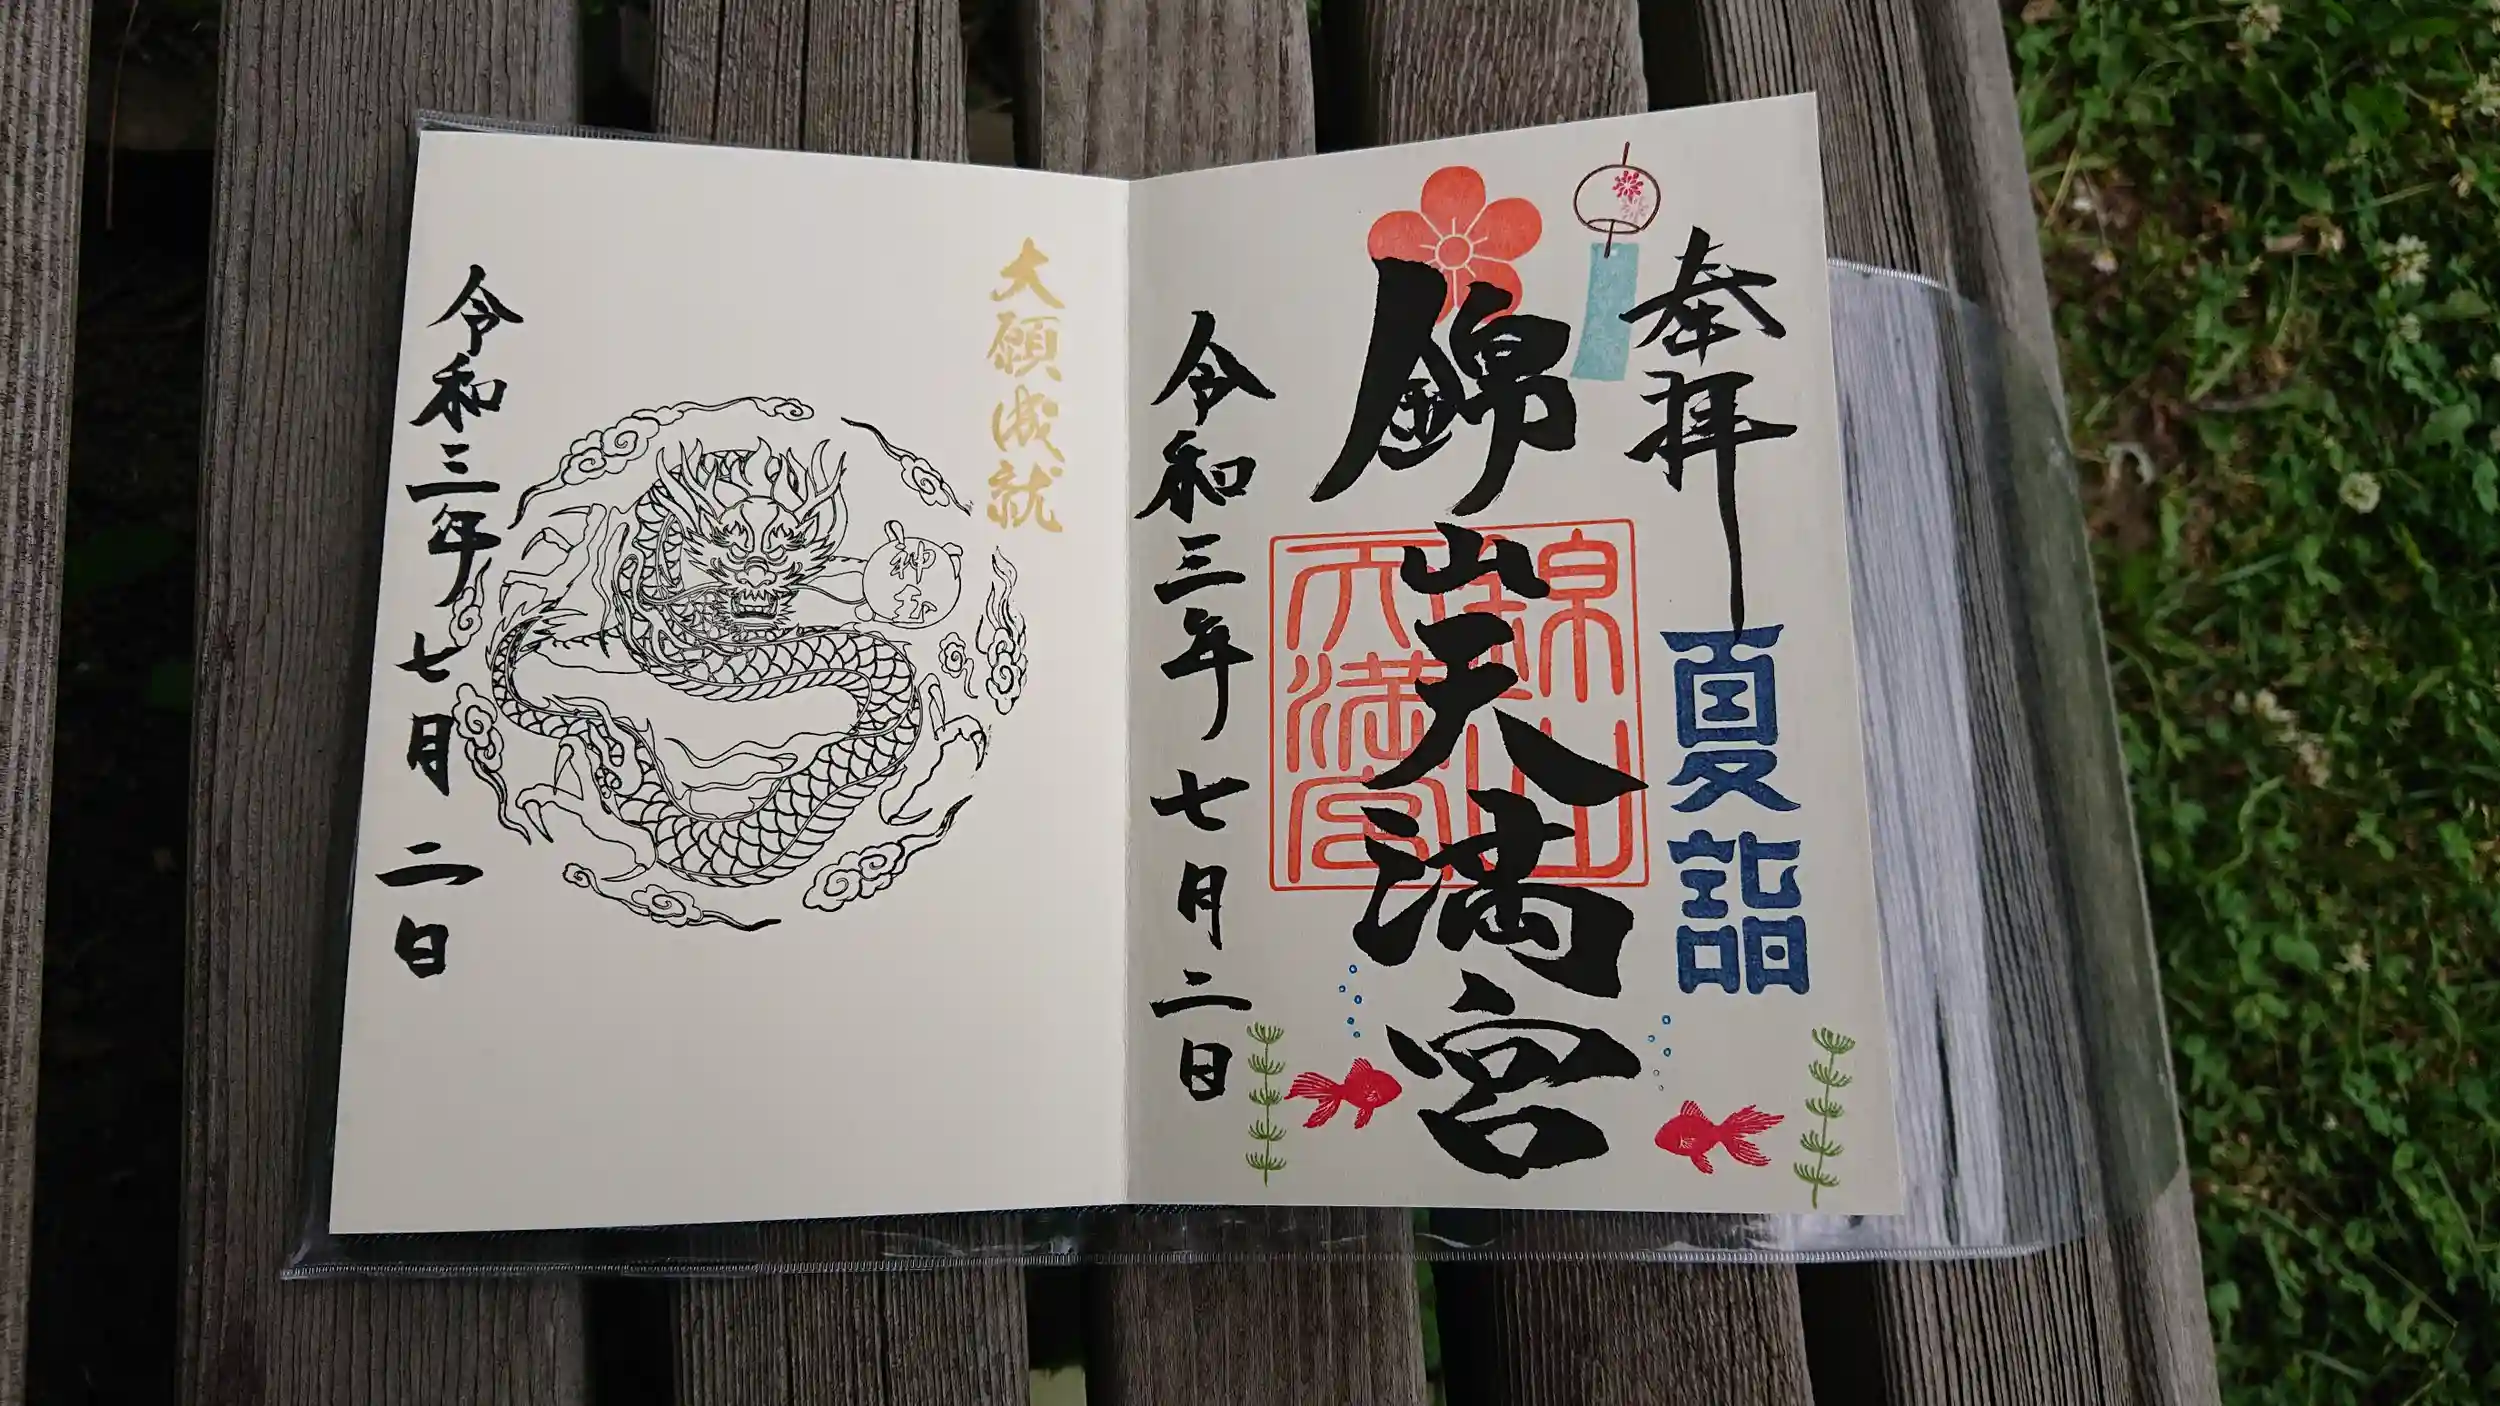 奉拝
夏詣
錦山天満宮
錦山
天満宮
令和三年七月二日
大願成就
神玉
令和三年七月二日